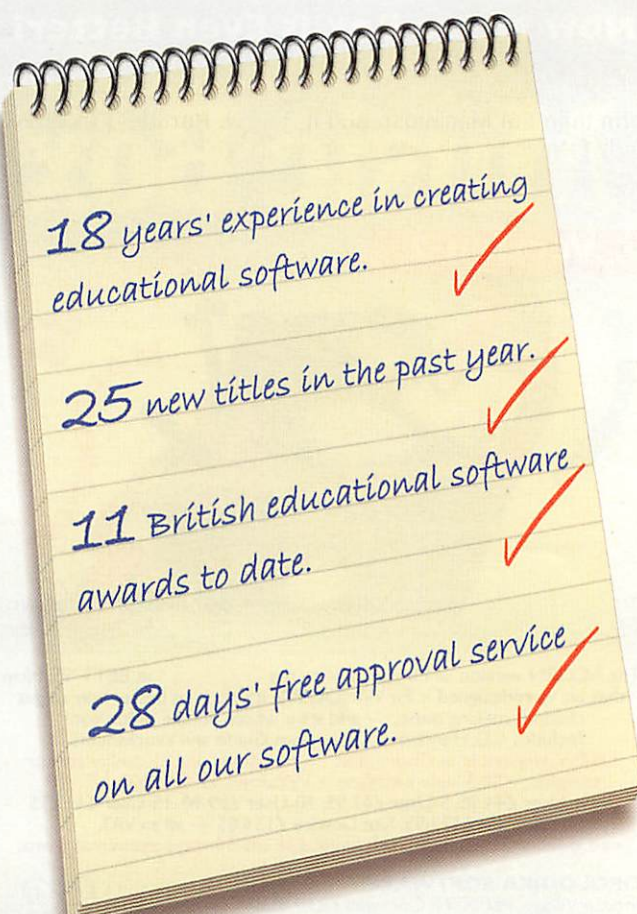 18 years' experience in creating
educational software.
25 new titles in the past year.
11 British educational software
awards to date.
28 days' free approval service
on all our software.